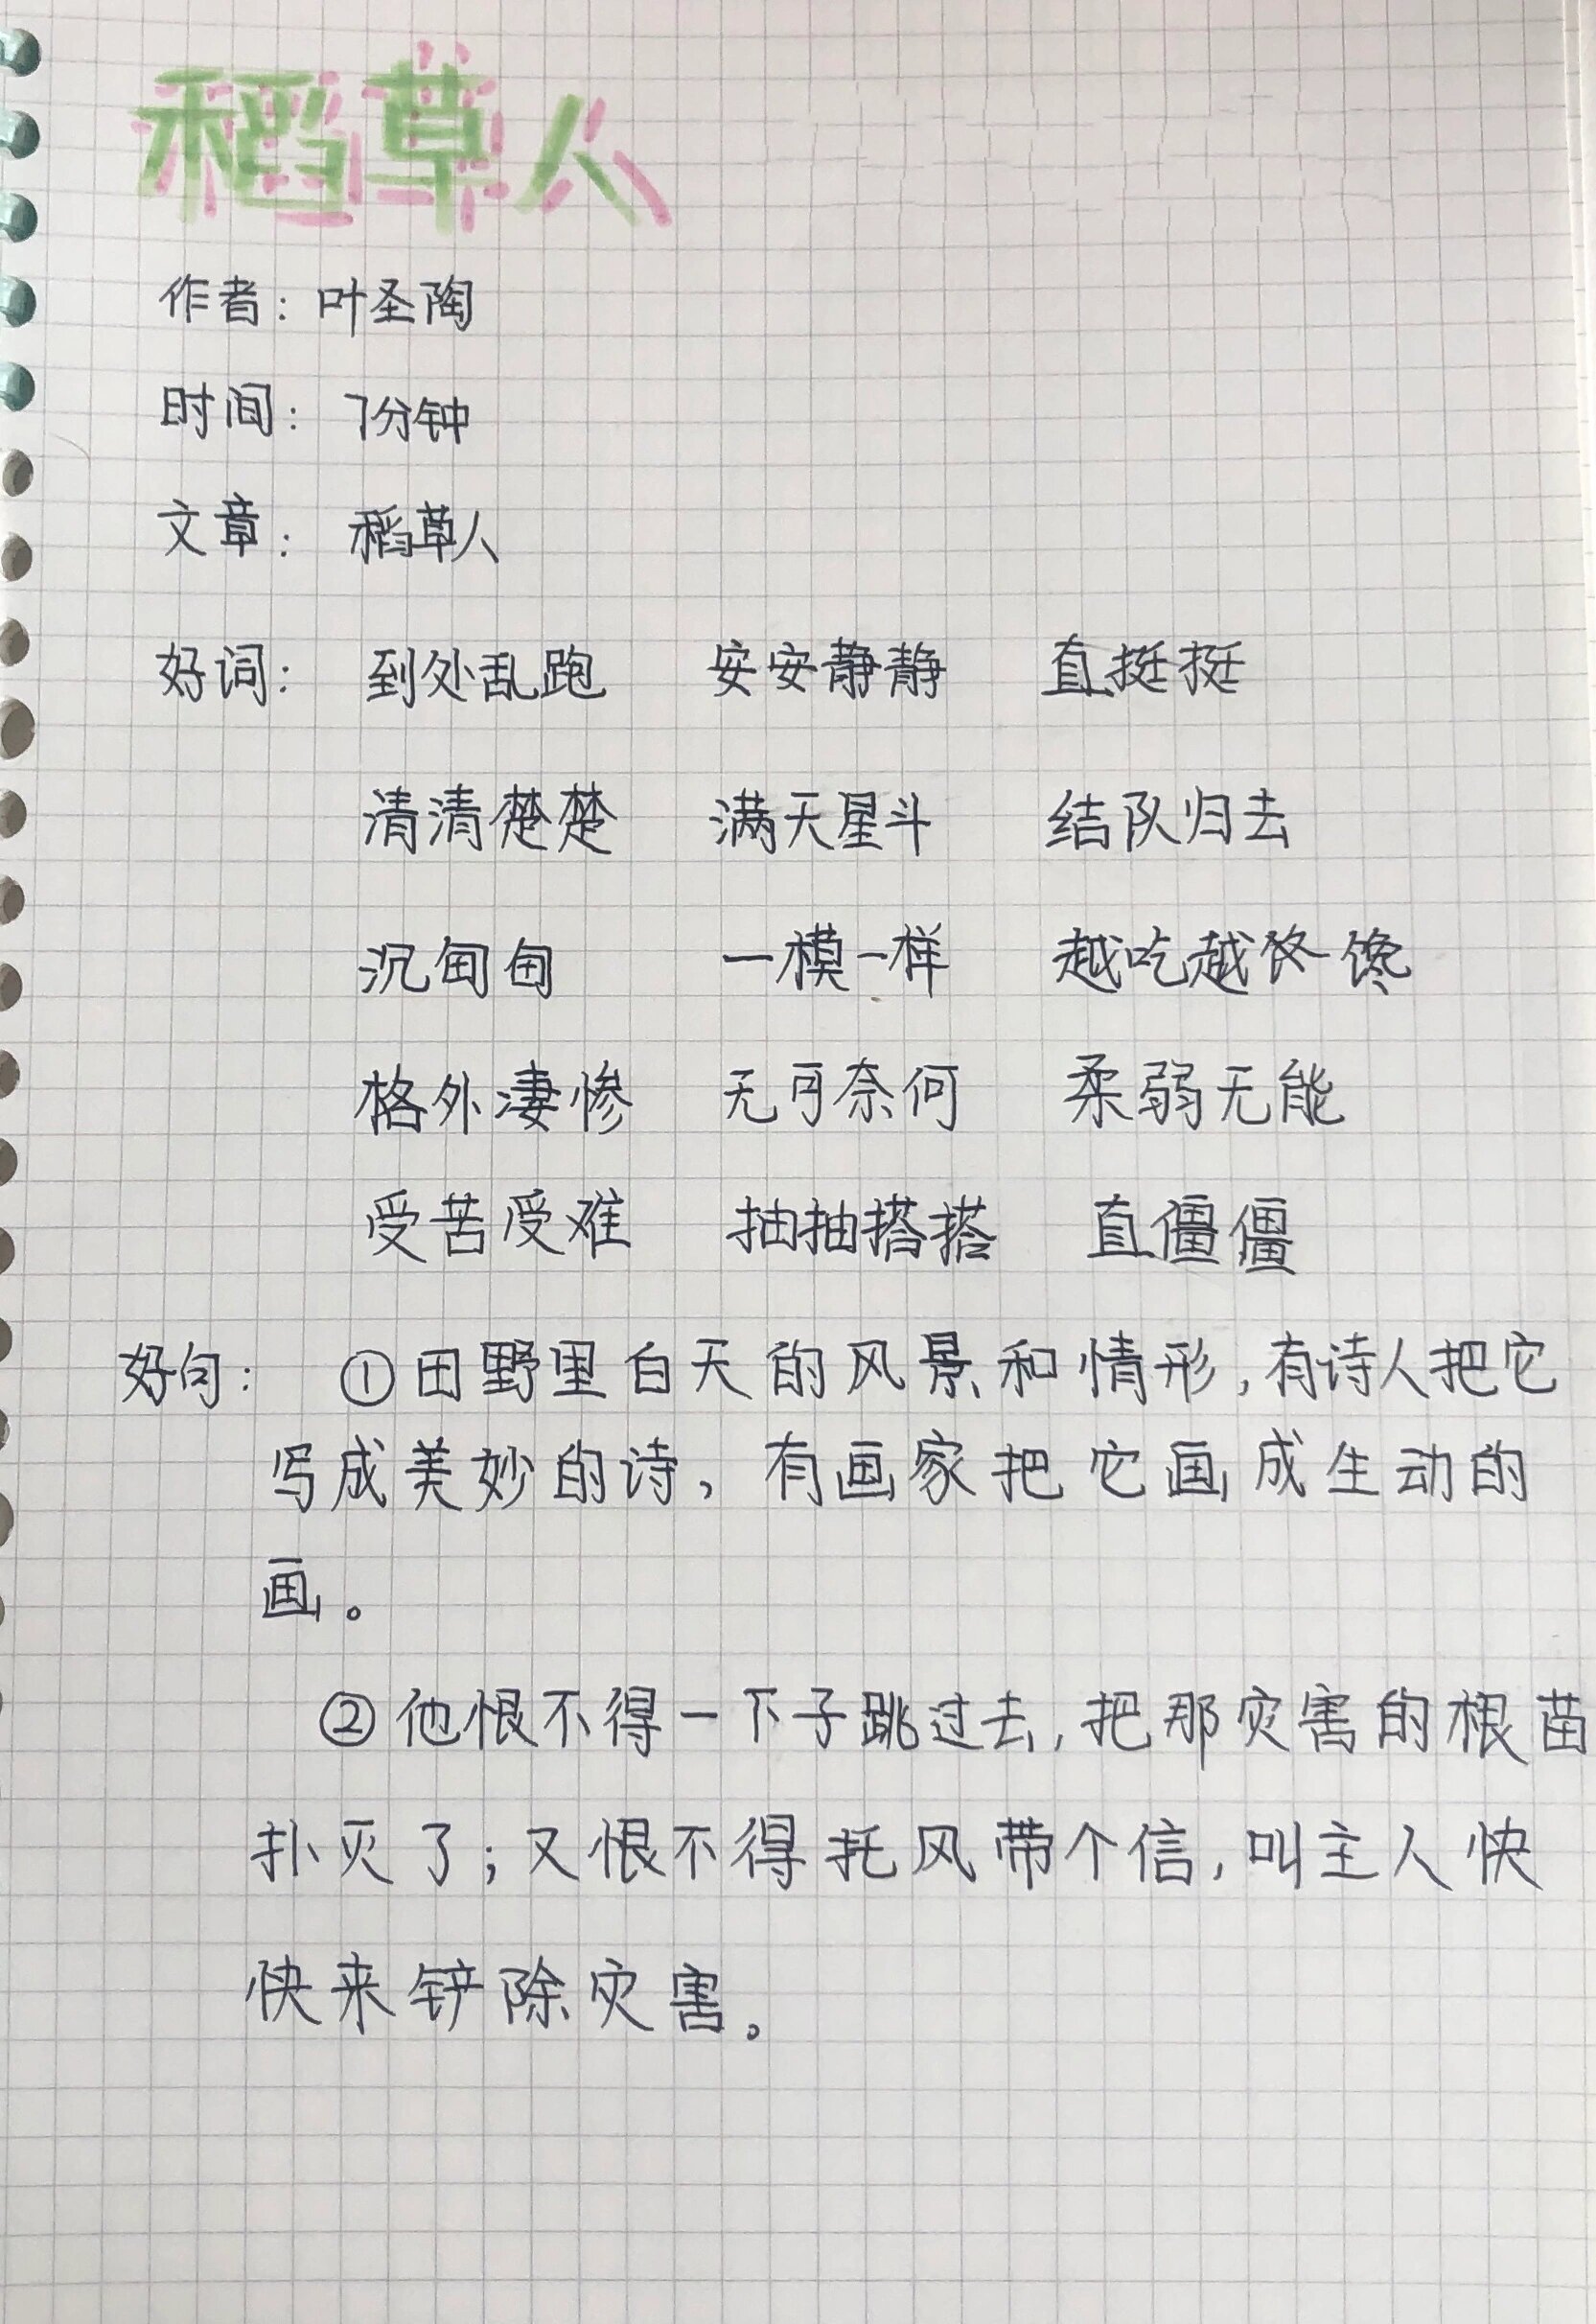 稻草人
作者：叶圣陶
时间：7分钟
文章：稻草人
好词：到处乱跑 安安静静 直挺挺
清清楚楚 满天星斗 结队归去
沉甸甸 一模一样 越吃越馋
格外凄惨 无可奈何 柔弱无能
受苦受难 抽抽搭搭 直僵僵
好句：①田野里白天的风景和情形，有诗人把它
写成美妙的诗，有画家把它画成生动的
画。
②他恨不得一下子跳过去，把那灾害的根苗
扑灭了；又恨不得托风带个信，叫主人快
快来铲除灾害。